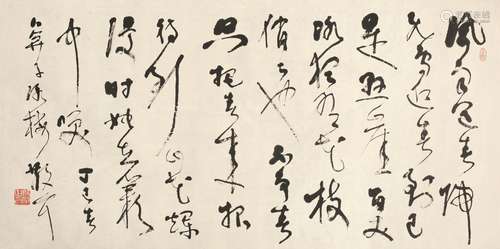 风雨送春归
飞雪迎春到已
是悬崖百丈
冰犹有花枝
俏〻也不争春
只把春来报
待到山花烂
漫时她在丛
中笑 丁巳春
卜算子咏梅 散耳